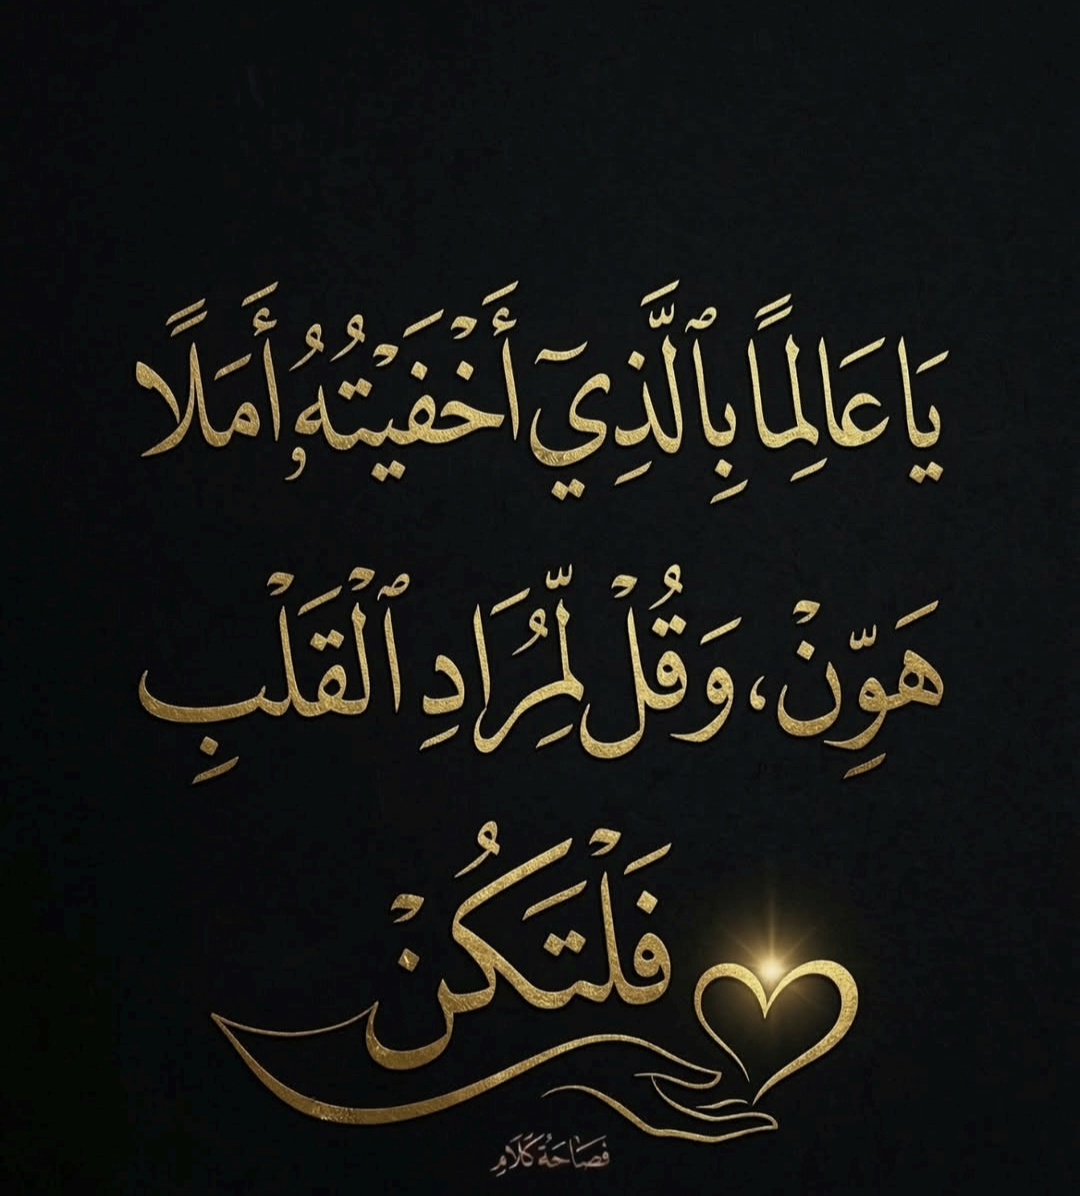 يَا عَالِمًا بِٱلَّذِيٓ أَخْفَيْتُهُۥ أَمَلًا
هَوِّنْ، وَقُلْ لِّمُرَادِ ٱلْقَلْبِ
فَلْتَكُنْ
فَصَاحَةُ كَلَامٍ